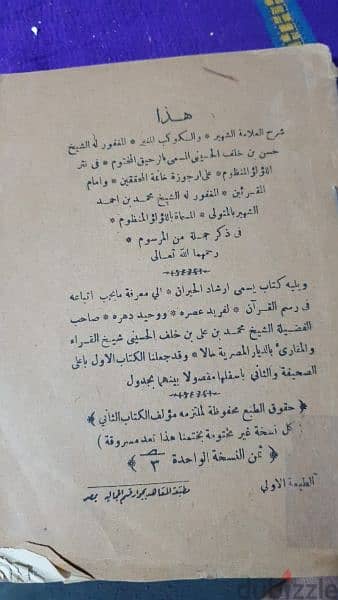 هذا
شرح العلامة الشهير * والكوكب المنير * المغفور له الشيخ
حسن بن خلف الحسيني المسمى بالرحيق المختوم * في نثر
اللؤلؤ المنظوم * على ارجوزة خاتمة المحققين * وامام
المقرئين * المغفور له الشيخ محمد بن احمد
الشهير بالمتولى * المسماة باللؤلؤ المنظوم *
في ذكر جملة من المرسوم *
رحمهما الله تعالى
ويليه كتاب يسمى ارشاد الحيران * الى معرفة ما يجب اتباعه
في رسم القرآن * لفريد عصره * ووحيد دهره * صاحب
الفضيلة الشيخ محمد بن على بن خلف الحسيني شيخ القراء
والمقارئ بالديار المصرية حالا * وقد جعلنا الكتاب الاول باعلى
الصحيفة والثاني باسفلها مفصولا بينهما بجدول
﴿ حقوق الطبع محفوظة لملتزمه مؤلف الكتاب الثاني ﴾
( كل نسخة غير مختومة بختمنا هذا تعد مسروقة )
﴿ ثمن النسخة الواحدة ٣ ﴾
الطبعة الاولى
مطبعة المعاهد بجوار قسم الجمالية بمصر
dubizzle